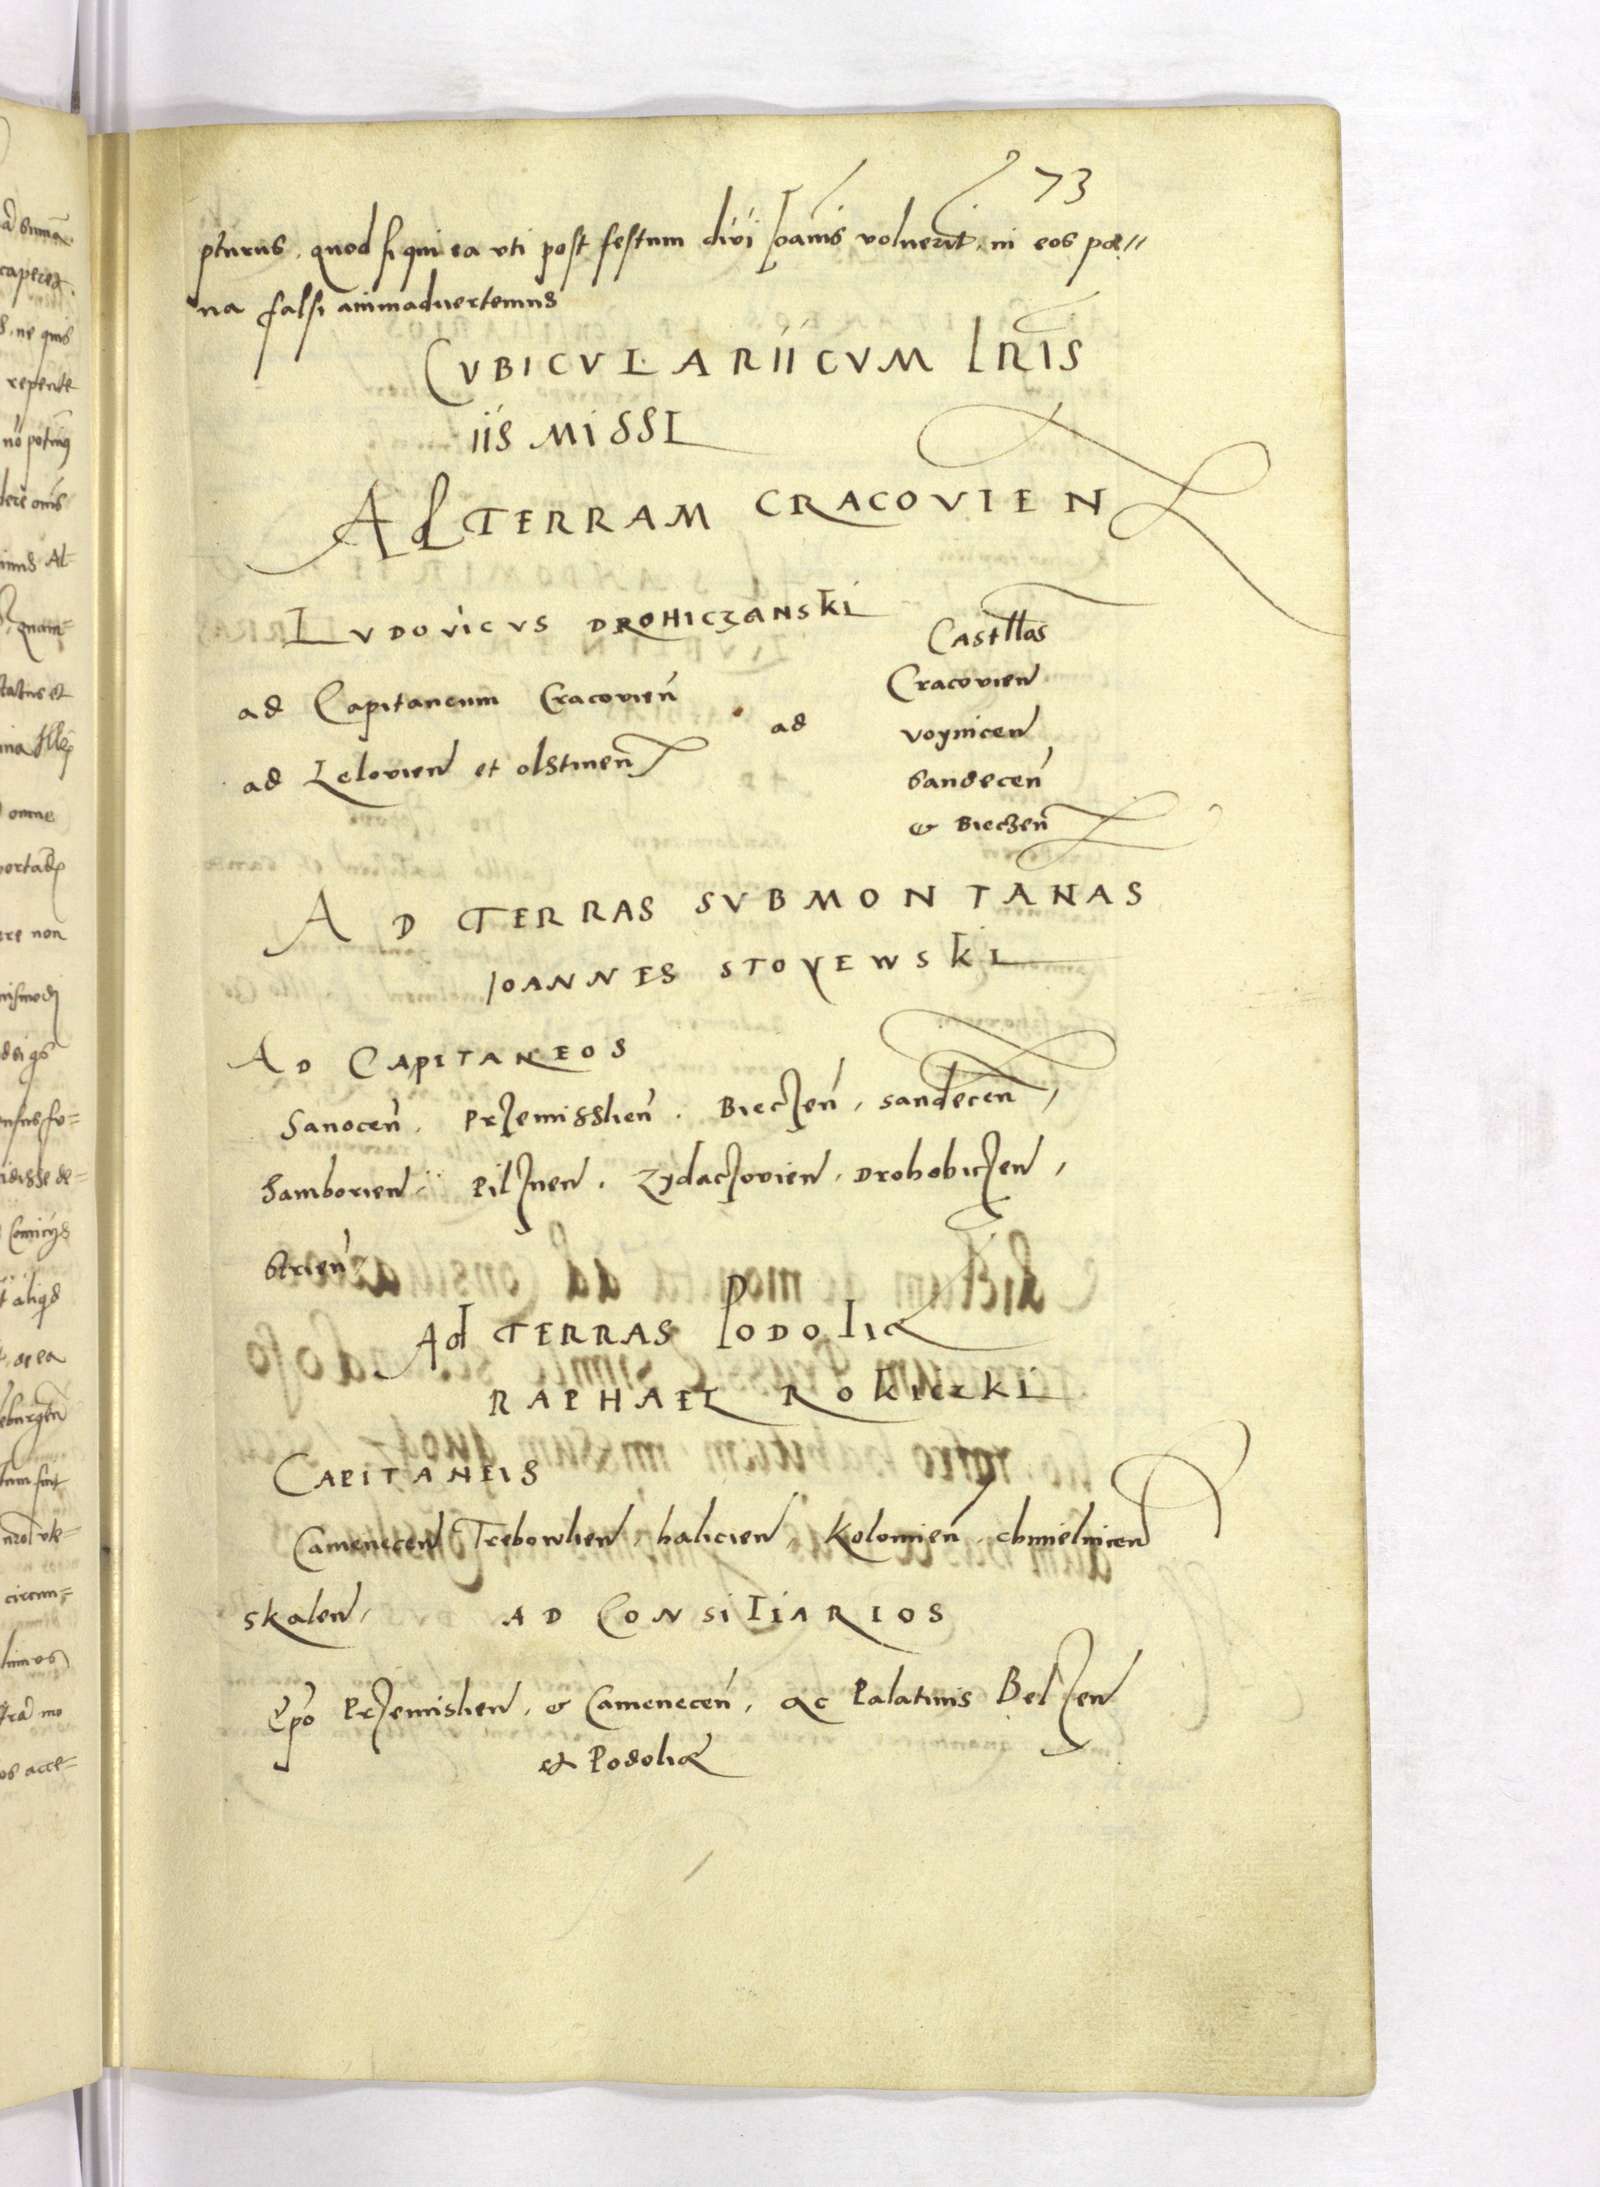 73
pturus, quod si qui ea vti post festum divi Joanis voluerit, in eos pœ//
na falsi animaduertemus
CVBICVLARII CVM LRIS
IIS MISSI
Ad TERRAM CRACOVIEN
LVDOVICVS DROHICZANSKI
ad Capitaneum Cracovien
ad Lelovien et olstinen
ad
Castllos
Cracovien
voynicen
Sandecen
& Bieczen
AD TERRAS SVBMONTANAS
IOANNES STOYEWSKI
AD CAPITANEOS
Sanocen, Przemisslien, Bieczen, Sandecen,
Samborien, Pilznen, Zydaczovien, Drohobiczen,
Strien,
Ad TERRAS PODOLIÆ
RAPHAEL ROKICZKI
CAPITANEIS
Camenecen Trebowlien, halicien, Kolomien, chmielnicen
skalen,
AD CONSILIARIOS
Epo Przemislien, & Camenecen, ac Palatinis Belzen
et Podoliæ